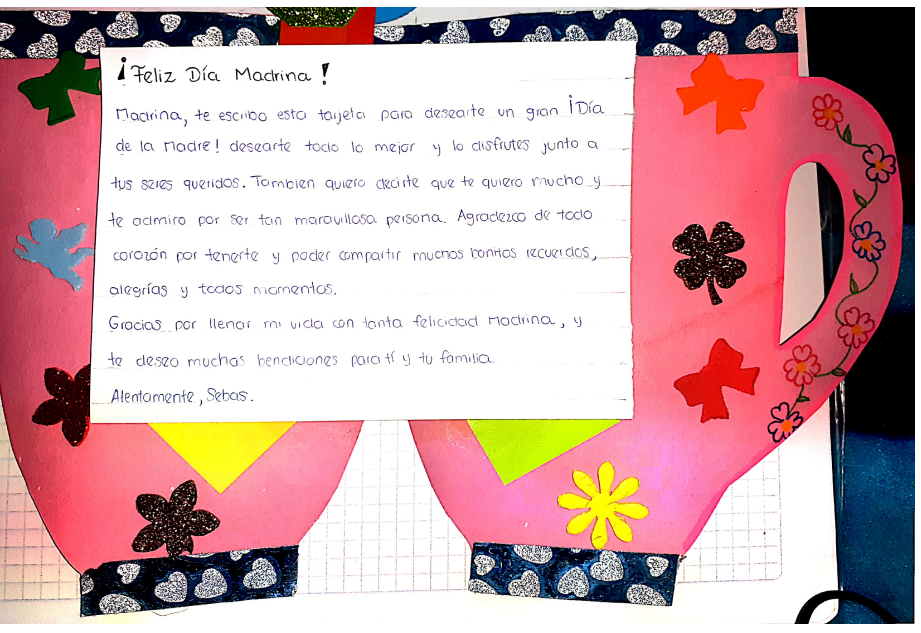 ¡Feliz Día Madrina!
Madrina, te escribo esta tarjeta para desearte un gran ¡Día
de la Madre! desearte todo lo mejor y lo disfrutes junto a
tus seres queridos. Tambien quiero decirte que te quiero mucho y
te admiro por ser tan maravillosa persona. Agradezco de todo
corazón por tenerte y poder compartir muchos bonitos recuerdos,
alegrías y todos momentos.
Gracias por llenar mi vida con tanta felicidad Madrina, y
te deseo muchas bendiciones para tí y tu familia.
Atentamente, Sebas.